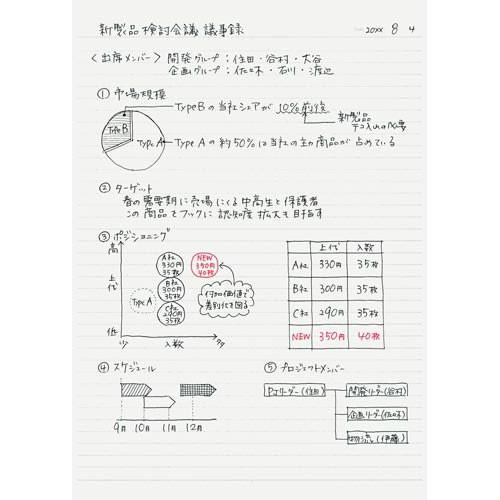 新製品検討会議 議事録
20XX 8 4
〈出席メンバー〉 開発グループ：住田・谷村・大谷
企画グループ：佐々木・石川・渡辺
① 市場規模
Type B の当社シェアが 10%前後
新製品
テコ入れの必要
Type B
Type A
Type A の約50%は当社の主力商品が占めている
② ターゲット
春の需要期に売場にくる中高生と保護者
この商品をフックに認知度拡大も目指す
③ ポジショニング
高
上代
低
少
入数
多
A社
330円
35枚
B社
300円
35枚
C社
290円
35枚
NEW
350円
40枚
Type A
付加価値で
差別化を図る
上代 入数
A社 330円 35枚
B社 300円 35枚
C社 290円 35枚
NEW 350円 40枚
④ スケジュール
9月 10月 11月 12月
⑤ プロジェクトメンバー
PJリーダー(住田)
開発リーダー(谷村)
企画リーダー(佐々木)
物流(伊藤)